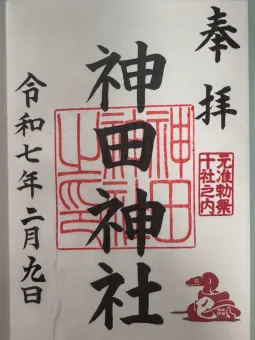 奉拝
神田神社
神田神社之印
元准勅祭
十社之内
令和七年二月九日